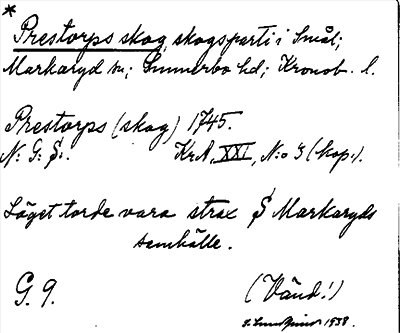 *
Prestorps skog, skogsparti i Smål;
Markaryd sn; Sunnerbo hd; Kronob. l.
Prestorps (skog) 1745.
N: G: S:.
KrA, XXI, N:o 3 (kop.).
Läget torde vara strax S Markaryds
samhälle.
G. 9.
(Vänd!)
1938.